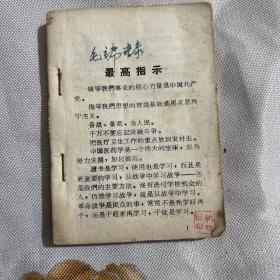 最高指示
領导我們事业的核心力量是中国共产
党。
指导我們思想的理論基础是馬克思列
宁主义。
备战、备荒、为人民。
千万不要忘記阶級斗爭。
把医疗卫生工作的重点放到农村去。
中国医药学是一个伟大的宝庫，应当
努力发掘，加以提高。
讀书是学习，使用也是学习，而且是
更重要的学习。从战爭中学习战爭——这
是我們的主要方法。沒有进过学校机会的
人，仍然学习战爭，就是从战爭中学习。
革命战爭是民众的事，常常不是先学好再
干，而是干起来再学习，干就是学习。
1